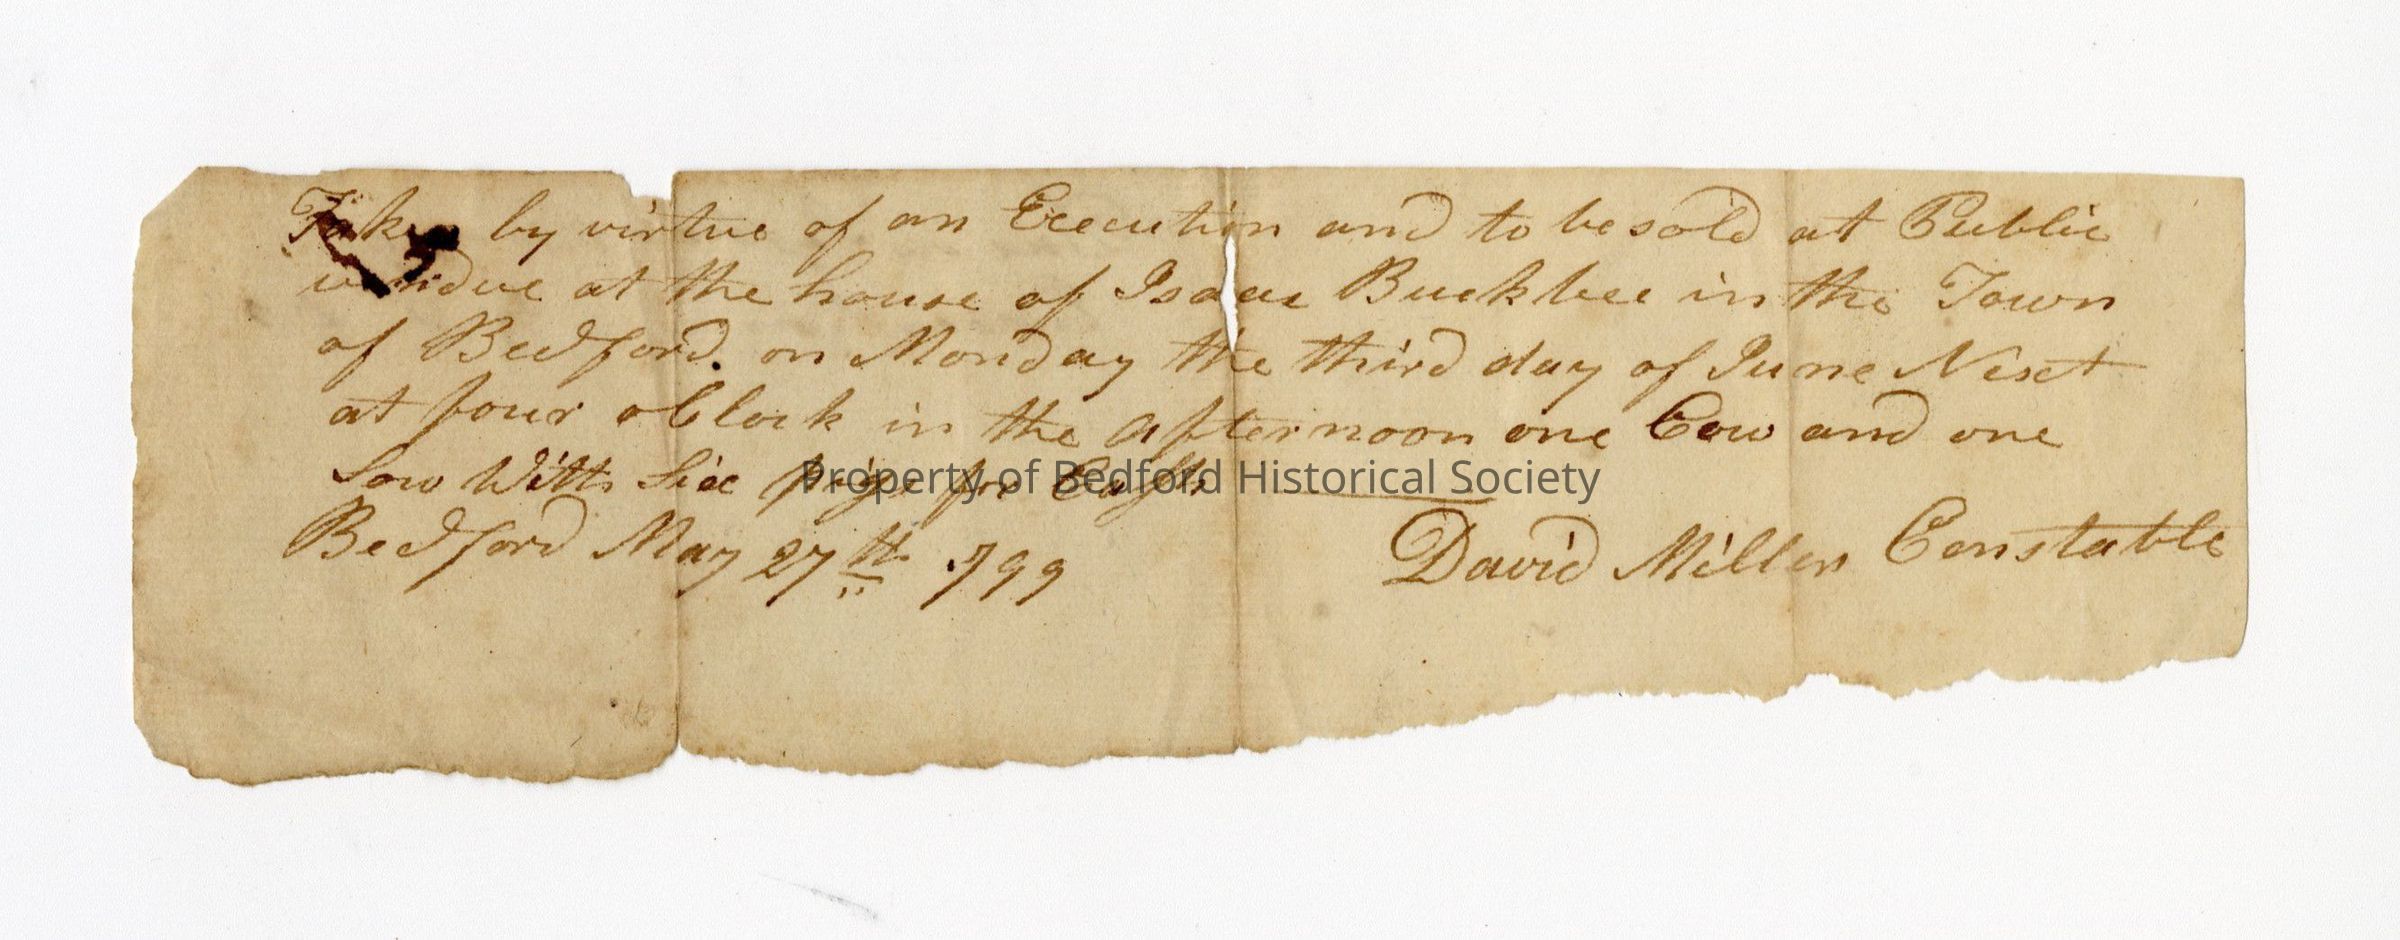 Taken by virtue of an Execution and to be sold at Public
vendue at the house of Isaac Buckbee in the Town
of Bedford. on Monday the third day of June Next
at four oClock in the afternoon one Cow and one
Sow With Six pigs for Cash
Property of Bedford Historical Society
Bedford May 27th 1799 David Miller Constable